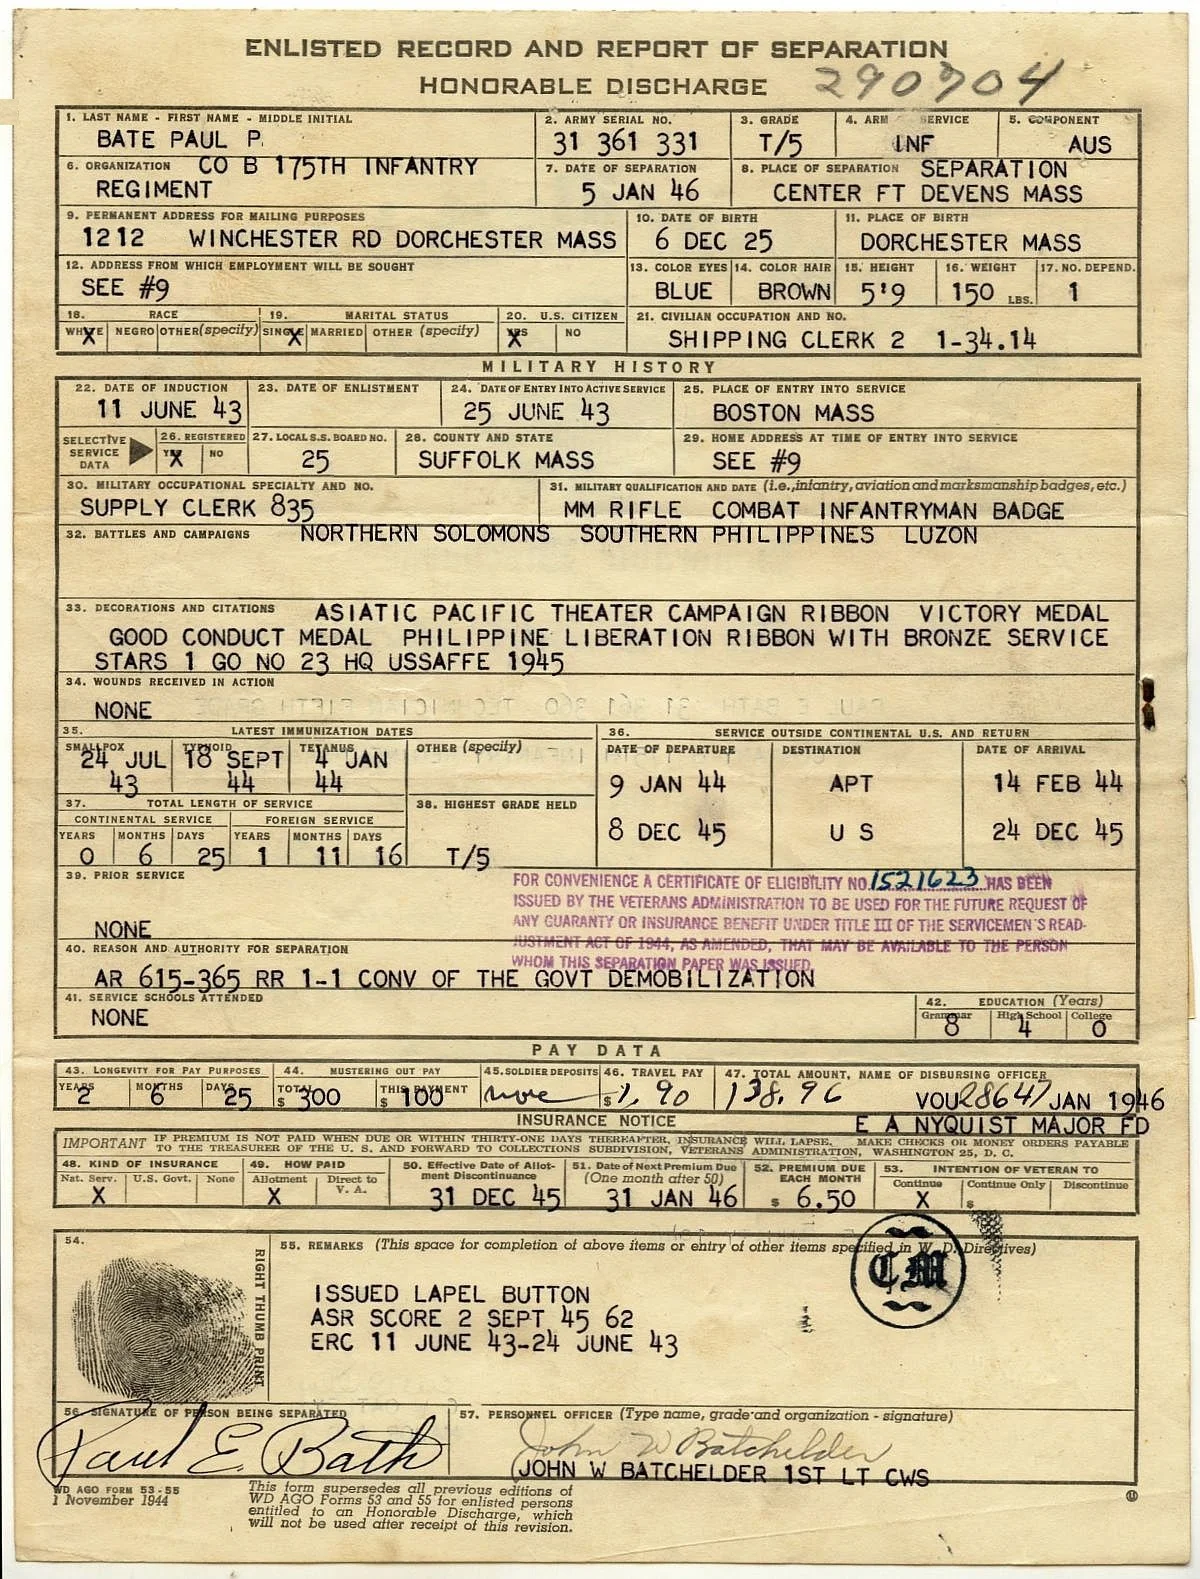 ENLISTED RECORD AND REPORT OF SEPARATION
HONORABLE DISCHARGE
290704
1. LAST NAME - FIRST NAME - MIDDLE INITIAL
BATE PAUL P.
2. ARMY SERIAL NO.
31 361 331
3. GRADE
T/5
4. ARM SERVICE
INF
5. COMPONENT
AUS
6. ORGANIZATION CO B 175TH INFANTRY
REGIMENT
7. DATE OF SEPARATION
5 JAN 46
8. PLACE OF SEPARATION SEPARATION
CENTER FT DEVENS MASS
9. PERMANENT ADDRESS FOR MAILING PURPOSES
1212 WINCHESTER RD DORCHESTER MASS
10. DATE OF BIRTH
6 DEC 25
11. PLACE OF BIRTH
DORCHESTER MASS
12. ADDRESS FROM WHICH EMPLOYMENT WILL BE SOUGHT
SEE #9
13. COLOR EYES
BLUE
14. COLOR HAIR
BROWN
15. HEIGHT
5'9
16. WEIGHT
150 LBS.
17. NO. DEPEND.
1
18. RACE
WHITE NEGRO OTHER (specify)
X
19. MARITAL STATUS
SINGLE MARRIED OTHER (specify)
X
20. U.S. CITIZEN
YES NO
X
21. CIVILIAN OCCUPATION AND NO.
SHIPPING CLERK 2 1-34.14
MILITARY HISTORY
22. DATE OF INDUCTION
11 JUNE 43
23. DATE OF ENLISTMENT
24. DATE OF ENTRY INTO ACTIVE SERVICE
25 JUNE 43
25. PLACE OF ENTRY INTO SERVICE
BOSTON MASS
SELECTIVE
SERVICE
DATA
26. REGISTERED
YES NO
X
27. LOCAL S.S. BOARD NO.
25
28. COUNTY AND STATE
SUFFOLK MASS
29. HOME ADDRESS AT TIME OF ENTRY INTO SERVICE
SEE #9
30. MILITARY OCCUPATIONAL SPECIALTY AND NO.
SUPPLY CLERK 835
31. MILITARY QUALIFICATION AND DATE (i.e., infantry, aviation and marksmanship badges, etc.)
MM RIFLE COMBAT INFANTRYMAN BADGE
32. BATTLES AND CAMPAIGNS NORTHERN SOLOMONS SOUTHERN PHILIPPINES LUZON
33. DECORATIONS AND CITATIONS ASIATIC PACIFIC THEATER CAMPAIGN RIBBON VICTORY MEDAL
GOOD CONDUCT MEDAL PHILIPPINE LIBERATION RIBBON WITH BRONZE SERVICE
STARS 1 GO NO 23 HQ USSAFFE 1945
34. WOUNDS RECEIVED IN ACTION
NONE
35. LATEST IMMUNIZATION DATES
SMALLPOX TYPHOID TETANUS OTHER (specify)
24 JUL 18 SEPT 4 JAN
43 44 44
36. SERVICE OUTSIDE CONTINENTAL U.S. AND RETURN
DATE OF DEPARTURE DESTINATION DATE OF ARRIVAL
9 JAN 44 APT 14 FEB 44
8 DEC 45 U S 24 DEC 45
37. TOTAL LENGTH OF SERVICE
CONTINENTAL SERVICE FOREIGN SERVICE
YEARS MONTHS DAYS YEARS MONTHS DAYS
0 6 25 1 11 16
38. HIGHEST GRADE HELD
T/5
39. PRIOR SERVICE
NONE
FOR CONVENIENCE A CERTIFICATE OF ELIGIBILITY NO. 1521623 HAS BEEN
ISSUED BY THE VETERANS ADMINISTRATION TO BE USED FOR THE FUTURE REQUEST OF
ANY GUARANTY OR INSURANCE BENEFIT UNDER TITLE III OF THE SERVICEMEN'S READ-
JUSTMENT ACT OF 1944, AS AMENDED, THAT MAY BE AVAILABLE TO THE PERSON
WHOM THIS SEPARATION PAPER WAS ISSUED
40. REASON AND AUTHORITY FOR SEPARATION
AR 615-365 RR 1-1 CONV OF THE GOVT DEMOBILIZATION
41. SERVICE SCHOOLS ATTENDED
NONE
42. EDUCATION (Years)
Grammar High School College
8 4 0
PAY DATA
43. LONGEVITY FOR PAY PURPOSES
YEARS MONTHS DAYS
2 6 25
44. MUSTERING OUT PAY
TOTAL THIS PAYMENT
$ 300 $ 100
45. SOLDIER DEPOSITS
none
46. TRAVEL PAY
$ 1.90
47. TOTAL AMOUNT, NAME OF DISBURSING OFFICER
138.96 VOU 28647 JAN 1946
E A NYQUIST MAJOR FD
INSURANCE NOTICE
IMPORTANT IF PREMIUM IS NOT PAID WHEN DUE OR WITHIN THIRTY-ONE DAYS THEREAFTER, INSURANCE WILL LAPSE. MAKE CHECKS OR MONEY ORDERS PAYABLE
TO THE TREASURER OF THE U. S. AND FORWARD TO COLLECTIONS SUBDIVISION, VETERANS ADMINISTRATION, WASHINGTON 25, D. C.
48. KIND OF INSURANCE
Nat. Serv. U.S. Govt. None
X
49. HOW PAID
Allotment Direct to V. A.
X
50. Effective Date of Allot-
ment Discontinuance
31 DEC 45
51. Date of Next Premium Due
(One month after 50)
31 JAN 46
52. PREMIUM DUE
EACH MONTH
$ 6.50
53. INTENTION OF VETERAN TO
Continue Continue Only Discontinue
X $
54.
RIGHT THUMB PRINT
55. REMARKS (This space for completion of above items or entry of other items specified in W. D. Directives)
CM
ISSUED LAPEL BUTTON
ASR SCORE 2 SEPT 45 62
ERC 11 JUNE 43-24 JUNE 43
56. SIGNATURE OF PERSON BEING SEPARATED
Paul E. Bath
57. PERSONNEL OFFICER (Type name, grade and organization - signature)
John W Batchelder
JOHN W BATCHELDER 1ST LT CWS
WD AGO FORM 53-55
1 November 1944
This form supersedes all previous editions of
WD AGO Forms 53 and 55 for enlisted persons
entitled to an Honorable Discharge, which
will not be used after receipt of this revision.